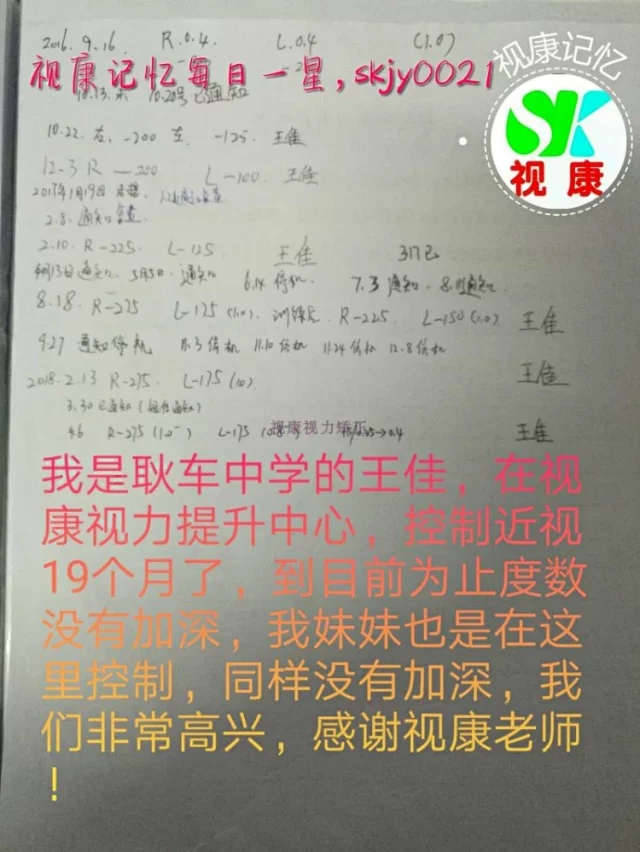 2016.9.16 R.0.4 L.0.4 (1.0)
视康记忆每日一星,skjy0021
视康记忆
SK
视康
10.13. 10.20号已通知
10.22. 右, -200 左, -125. 王佳
12.3 R -200 L-100. 王佳
2017年1月19日
2.8. 通知
2.10. R-225. L-125 王佳
4月13日通知 5月5日. 通知 6.14 停机 7.3 通知. 8.11通知
8.18. R-275 L-175(1.0). 训练后. R-225. L-150(1.0) 王佳
9.27 通知停机 11.3停机 11.10停机 11.24停机 12.8停机
2018.2.13 R-275. L-175(1.0) 王佳
3.30已通知(短信通知)
4.6 R-275(1.0) L-175 王佳
视康视力矫正
我是耿车中学的王佳，在视
康视力提升中心，控制近视
19个月了，到目前为止度数
没有加深，我妹妹也是在这
里控制，同样没有加深，我
们非常高兴，感谢视康老师
！